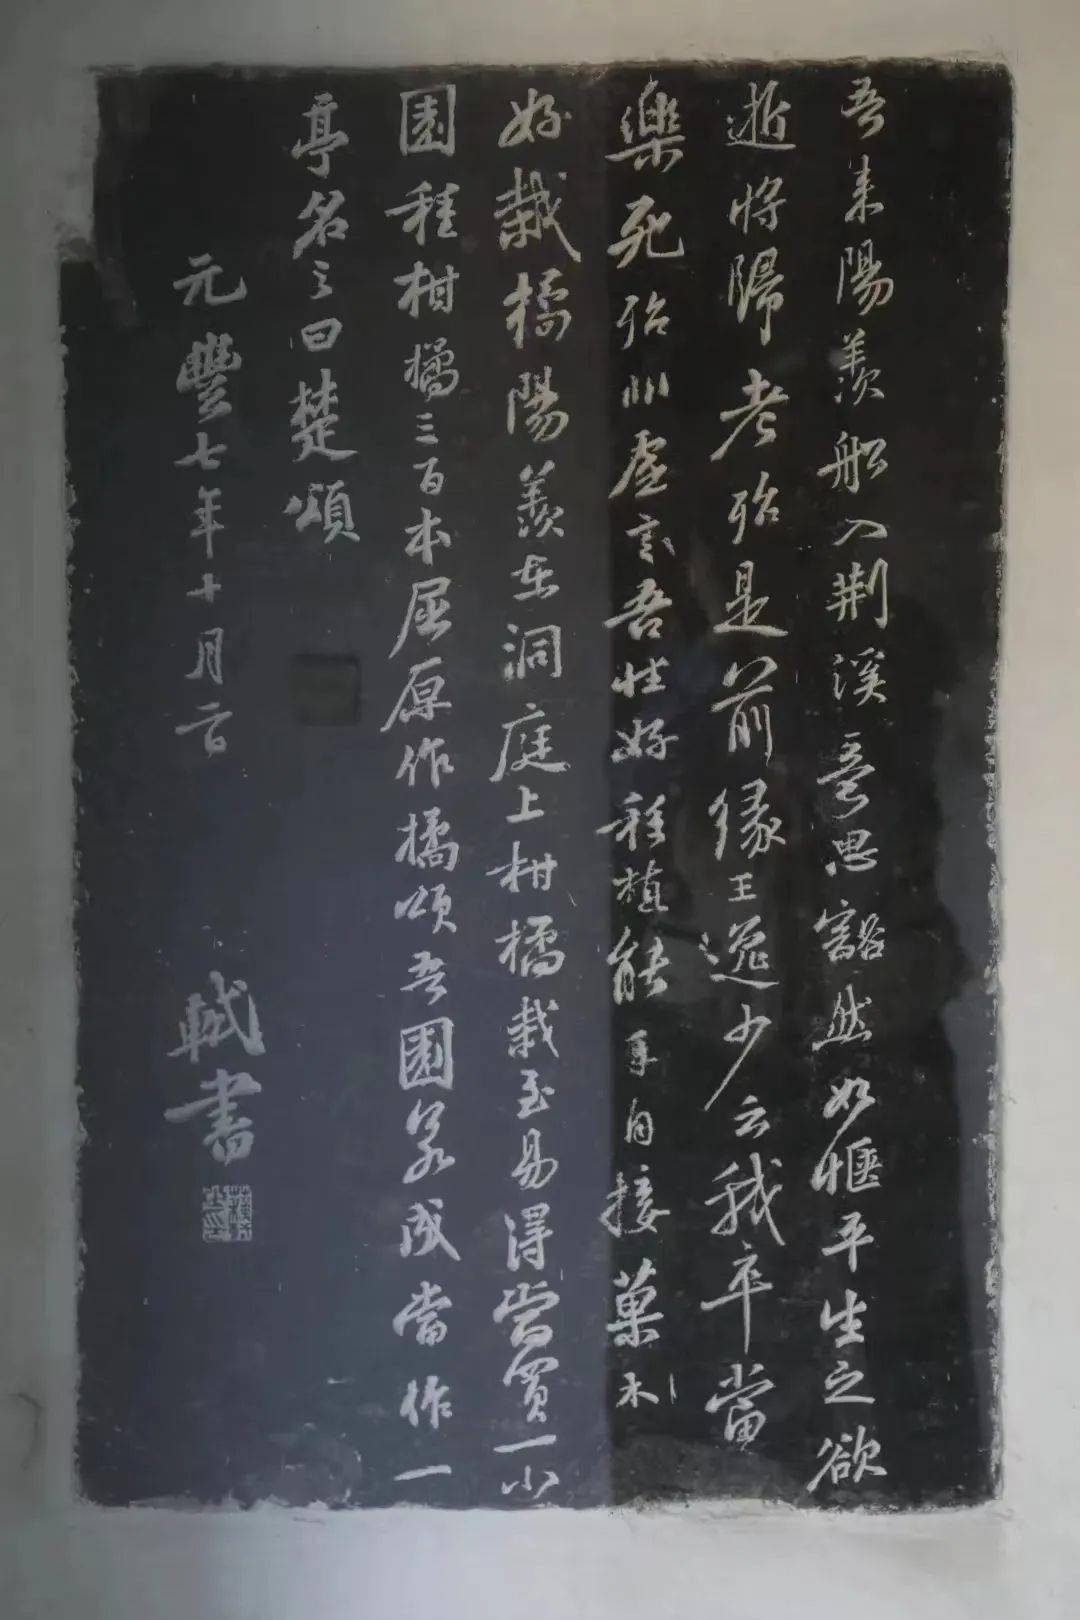 吾來陽羨船入荊溪意思豁然如愜平生之欲
逝將歸老殆是前緣王逸少云我卒當
樂死殆非虛言吾性好種植能手自接菓木
好栽橘陽羨在洞庭上柑橘栽至易得當買一小
園種柑橘三百本屈原作橘頌吾園若成當作一
亭名之曰楚頌
元豐七年十月二日
軾書